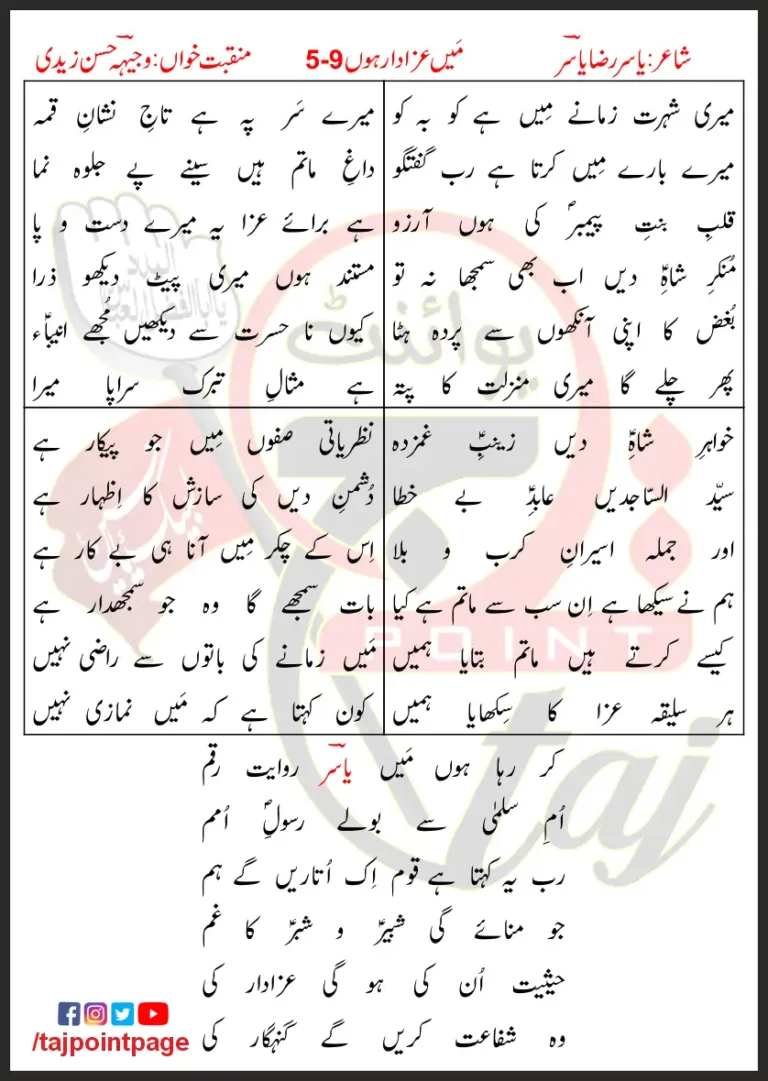 شاعر: یاسر رضا یاسرؔ
مَیں عزادار ہوں 9-5
منقبت خواں: وجیہہ حسن زیدی
میری شہرت زمانے مِیں ہے کو بہ کو
میرے بارے مِیں کرتا ہے رب گفتگو
قلبِ بنتِ پیمبرؐ کی ہوں آرزو
مُنکرِ شاہِؑ دیں اب بھی سمجھا نہ تو
بُغض کا اپنی آنکھوں سے پردہ ہٹا
پھر چلے گا میری منزلت کا پتہ
میرے سَر پہ ہے تاجِ نشانِ قمہ
داغِ ماتم ہیں سینے پے جلوہ نما
ہے برائے عزا یہ میرے دست و پا
مستند ہوں میری پیٹ دیکھو ذرا
کیوں نا حسرت سے دیکھیں مُجھے انبیاؑء
ہے مثالِ تبرک سراپا میرا
خواہرِ شاہِؑ دیں زینبِؑ غمزدہ
سیّد السّاجدیں عابدِؑ بے خطا
اور جملہ اسیرانِ کرب و بلا
ہم نے سیکھا ہے اِن سب سے ماتم ہے کیا
کیسے کرتے ہیں ماتم بتایا ہمیں
ہر سلیقہ عزا کا سِکھایا ہمیں
نظریاتی صفوں مِیں جو پیکار ہے
دُشمنِ دیں کی سازش کا اِظہار ہے
اِس کے چکر مِیں آنا ہی بے کار ہے
بات سمجھے گا وہ جو سمجھدار ہے
مَیں زمانے کی باتوں سے راضی نہیں
کون کہتا ہے کہ مَیں نمازی نہیں
کر رہا ہوں مَیں یاسرؔ روایت رقم
اُمِ سلمٰی سے بولے رسولِؐ اُمم
رب یہ کہتا ہے قوم اِک اُتاریں گے ہم
جو منائے گی شبیرؑ و شبرؑ کا غم
حیثیت اُن کی ہو گی عزادار کی
وہ شفاعت کریں گے گنہگار کی
/tajpointpage
پوائنٹ
تاج
POINT
taj